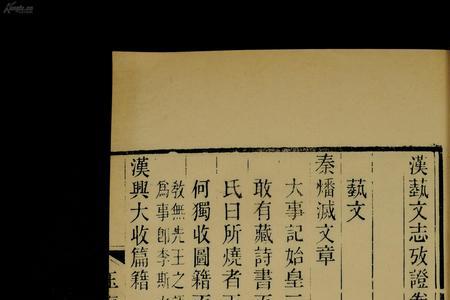 漢藝文志攷證卷
藝文
秦燔滅文章
大事記始皇三
敢有藏詩書百
氏曰所燒者
何獨收圖籍
漢興大收篇籍
敎無先王之語
爲事卽李斯
玉